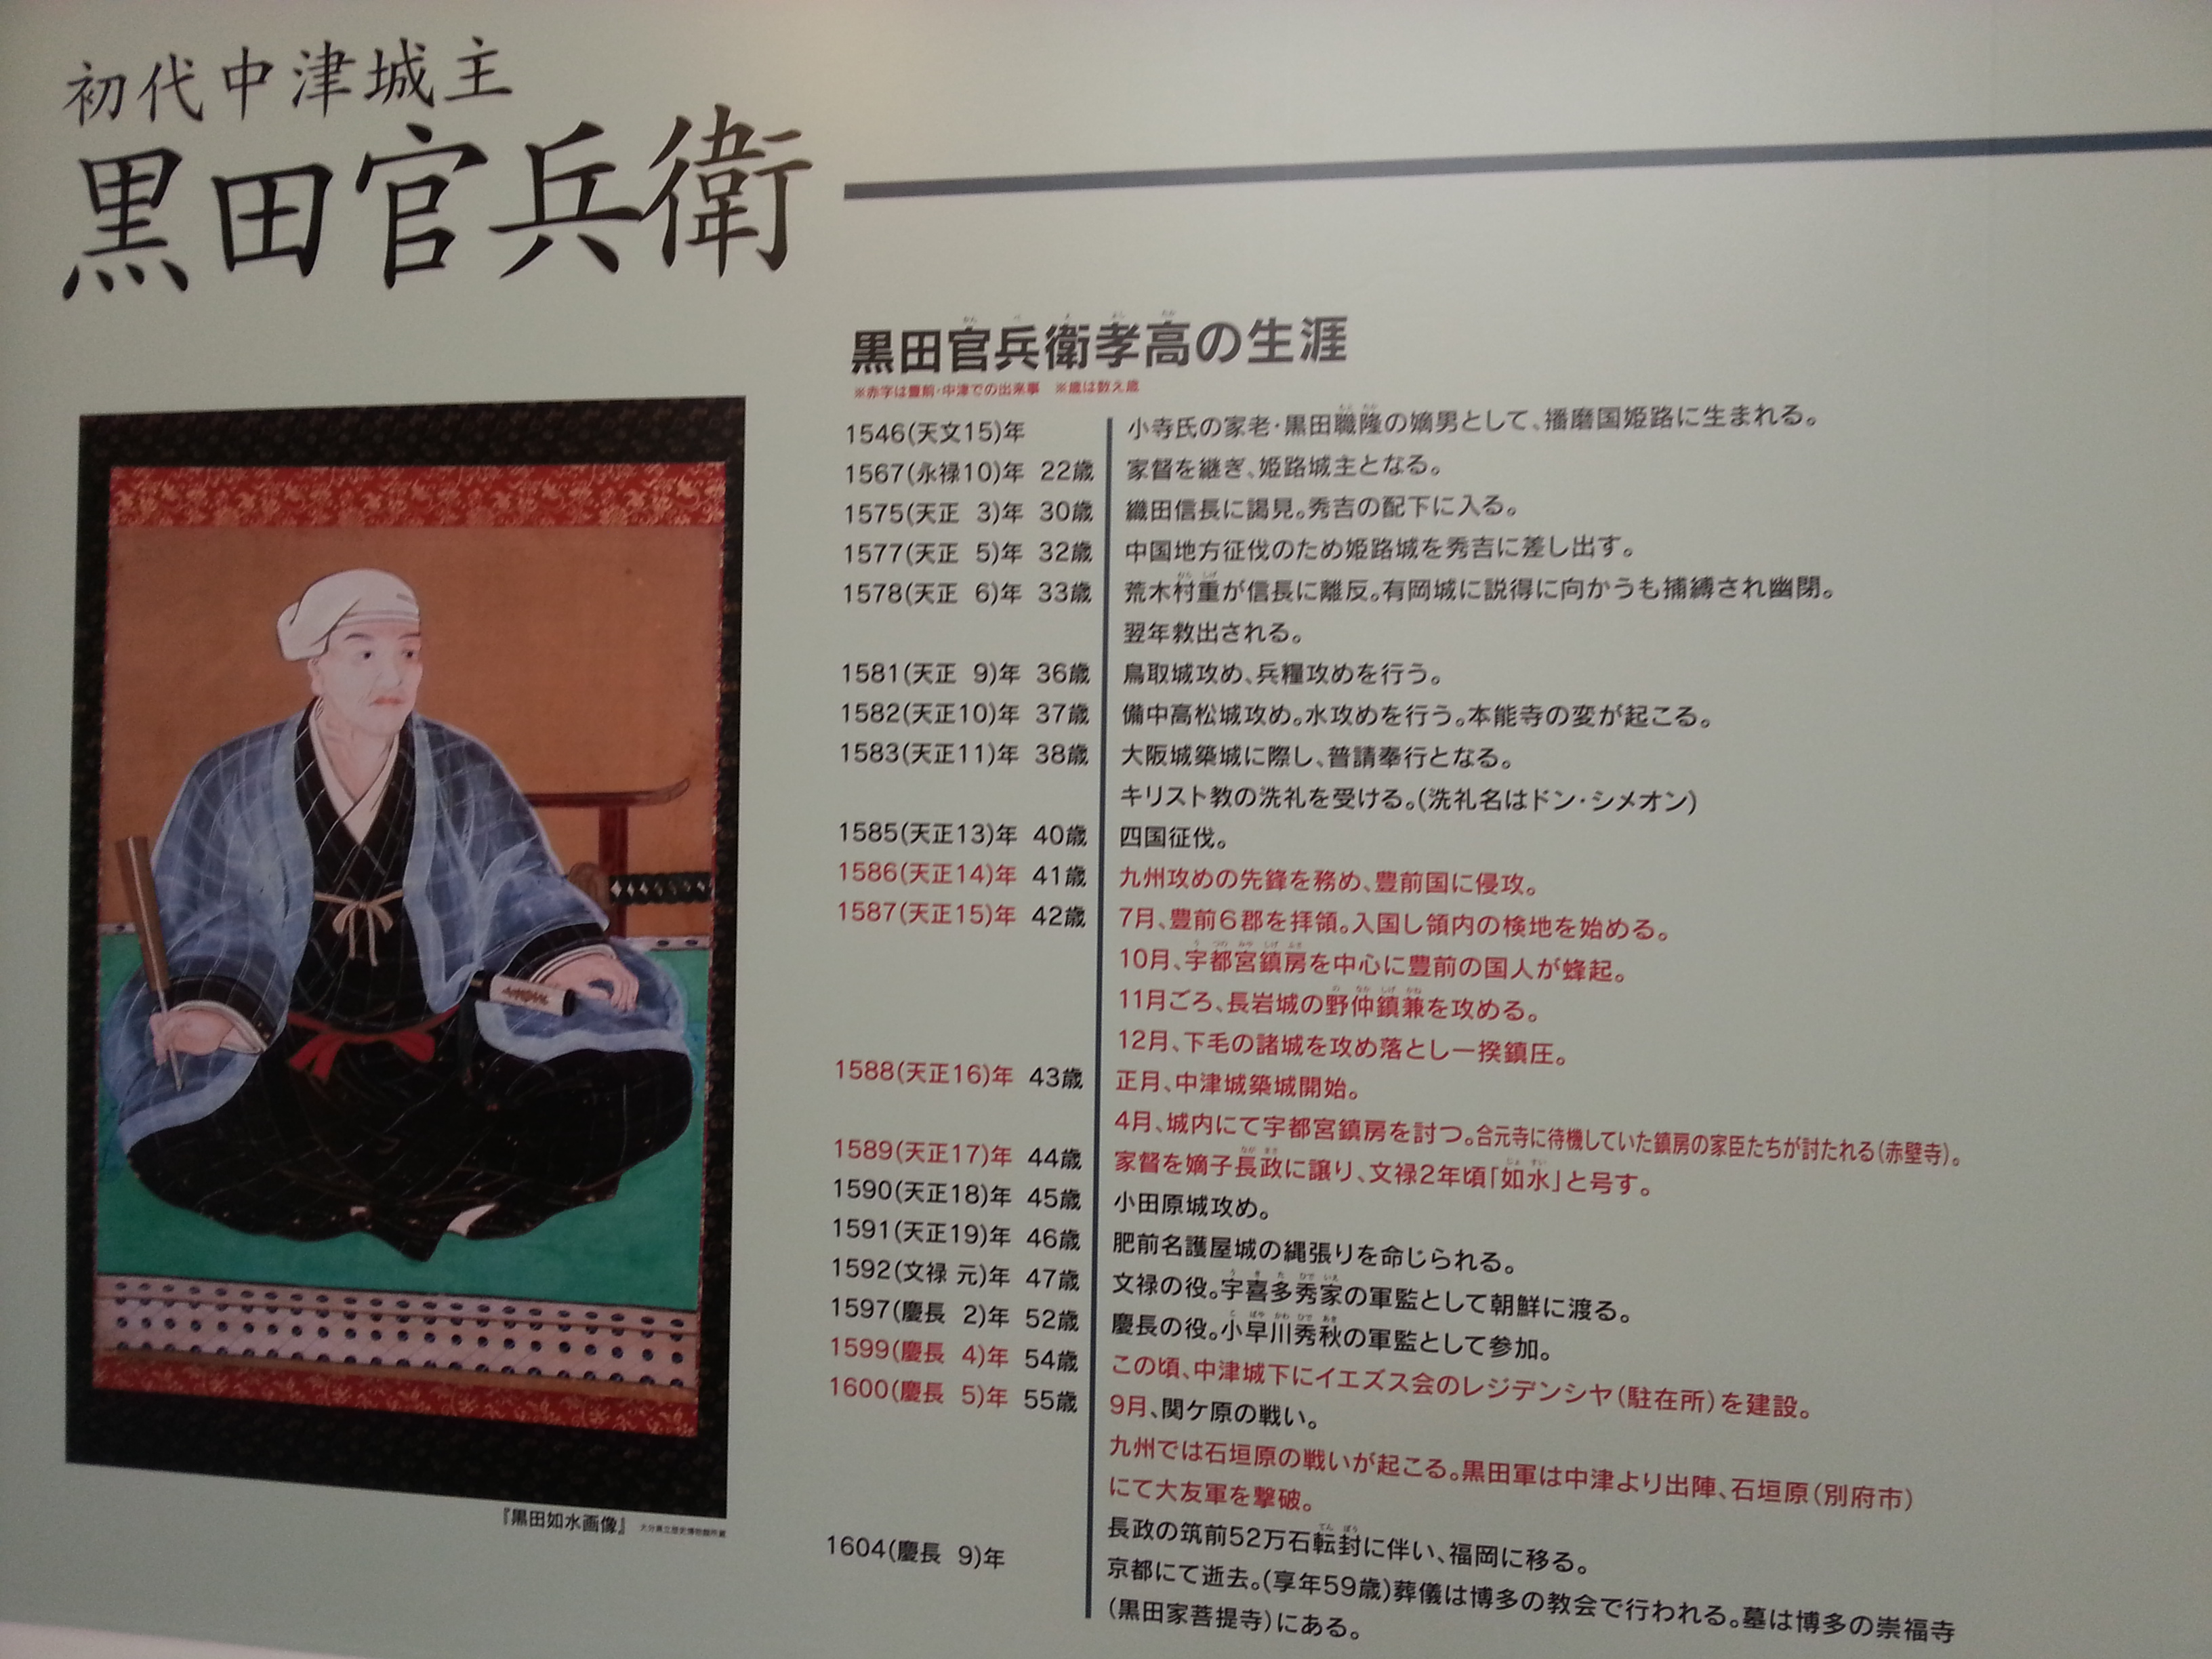 初代中津城主
黒田官兵衛
黒田官兵衛孝高の生涯
※赤字は豊前・中津での出来事　※歳は数え歳
1546(天文15)年 小寺氏の家老・黒田職隆の嫡男として、播磨国姫路に生まれる。
1567(永禄10)年 22歳 家督を継ぎ、姫路城主となる。
1575(天正 3)年 30歳 織田信長に謁見。秀吉の配下に入る。
1577(天正 5)年 32歳 中国地方征伐のため姫路城を秀吉に差し出す。
1578(天正 6)年 33歳 荒木村重が信長に離反。有岡城に説得に向かうも捕縛され幽閉。
翌年救出される。
1581(天正 9)年 36歳 鳥取城攻め、兵糧攻めを行う。
1582(天正10)年 37歳 備中高松城攻め。水攻めを行う。本能寺の変が起こる。
1583(天正11)年 38歳 大阪城築城に際し、普請奉行となる。
キリスト教の洗礼を受ける。(洗礼名はドン・シメオン)
1585(天正13)年 40歳 四国征伐。
1586(天正14)年 41歳 九州攻めの先鋒を務め、豊前国に侵攻。
1587(天正15)年 42歳 7月、豊前6郡を拝領。入国し領内の検地を始める。
10月、宇都宮鎮房を中心に豊前の国人が蜂起。
11月ごろ、長岩城の野仲鎮兼を攻める。
12月、下毛の諸城を攻め落とし一揆鎮圧。
1588(天正16)年 43歳 正月、中津城築城開始。
4月、城内にて宇都宮鎮房を討つ。合元寺に待機していた鎮房の家臣たちが討たれる(赤壁寺)。
1589(天正17)年 44歳 家督を嫡子長政に譲り、文禄2年頃「如水」と号す。
1590(天正18)年 45歳 小田原城攻め。
1591(天正19)年 46歳 肥前名護屋城の縄張りを命じられる。
1592(文禄 元)年 47歳 文禄の役。宇喜多秀家の軍監として朝鮮に渡る。
1597(慶長 2)年 52歳 慶長の役。小早川秀秋の軍監として参加。
1599(慶長 4)年 54歳 この頃、中津城下にイエズス会のレジデンシヤ(駐在所)を建設。
1600(慶長 5)年 55歳 9月、関ケ原の戦い。
九州では石垣原の戦いが起こる。黒田軍は中津より出陣、石垣原(別府市)
にて大友軍を撃破。
長政の筑前52万石転封に伴い、福岡に移る。
1604(慶長 9)年 京都にて逝去。(享年59歳)葬儀は博多の教会で行われる。墓は博多の崇福寺
(黒田家菩提寺)にある。
『黒田如水画像』 大分県立歴史博物館所蔵